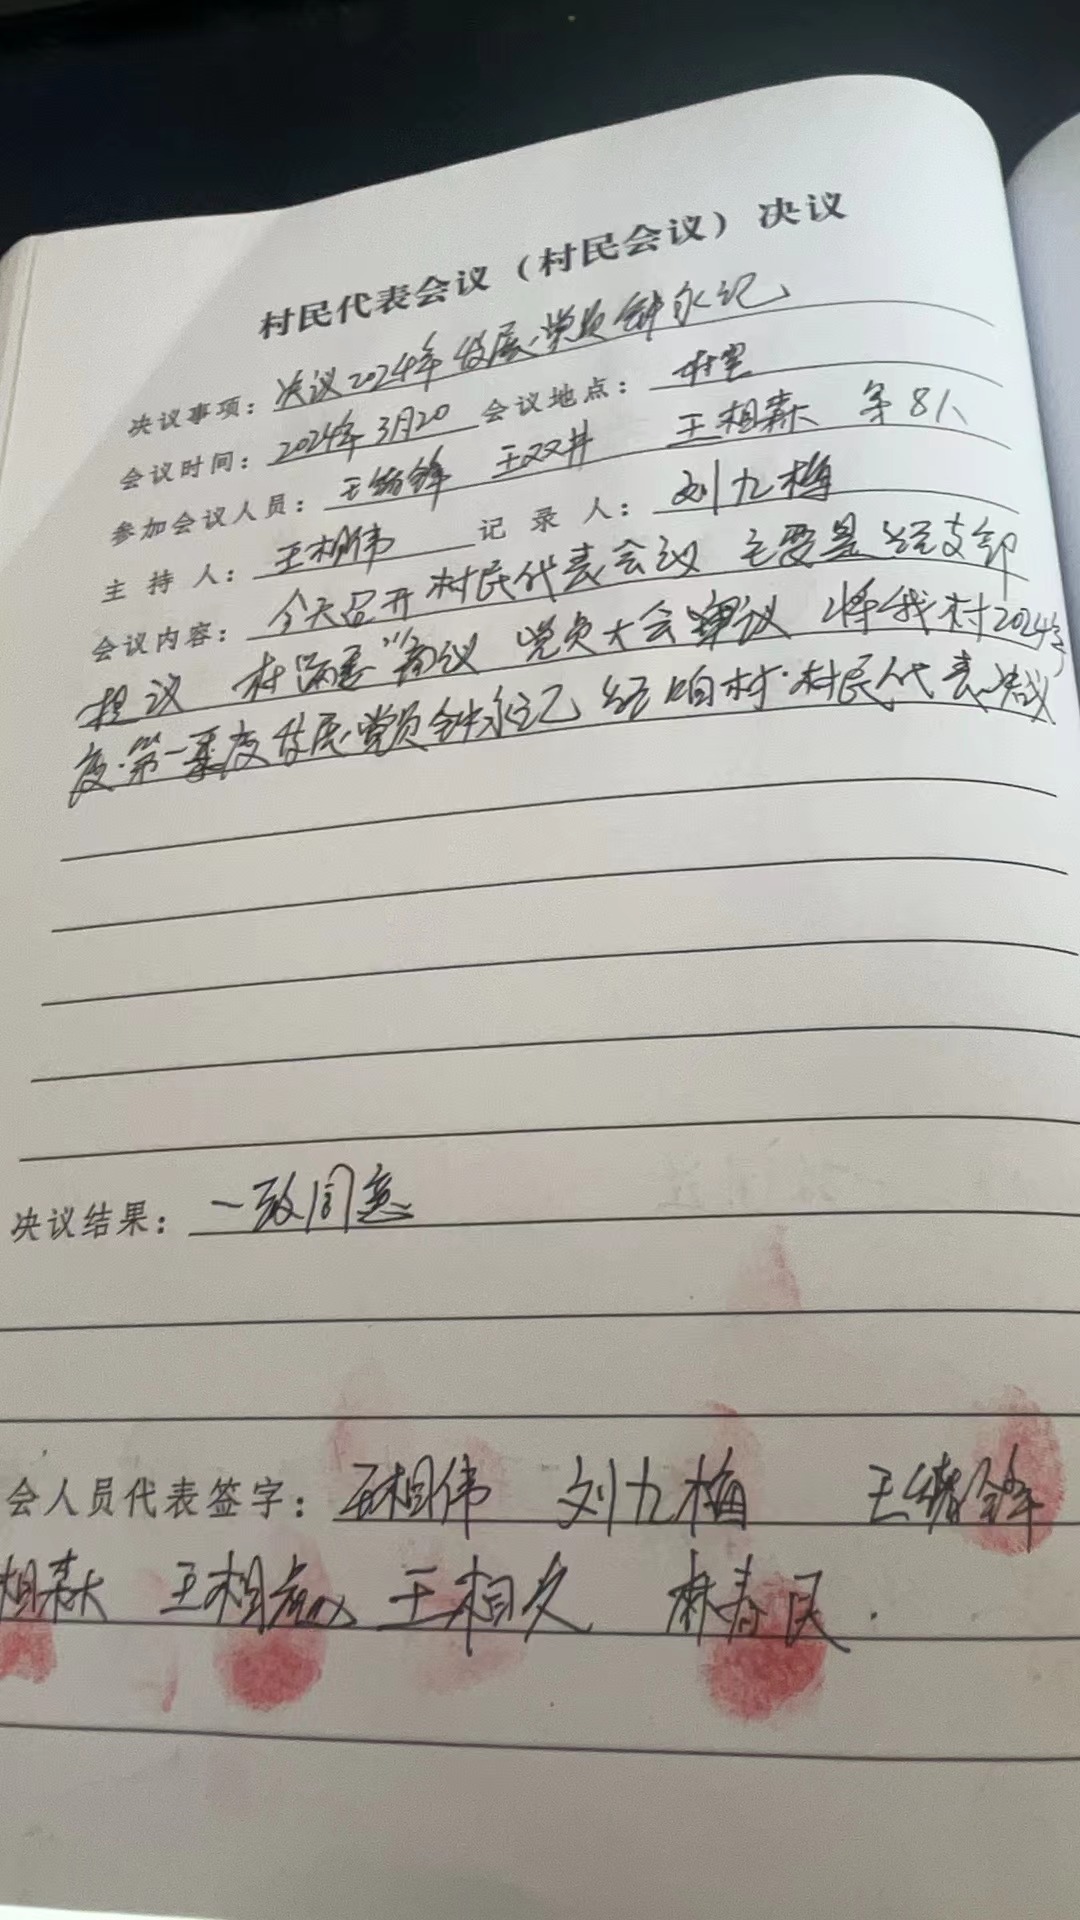 村民代表会议（村民会议）决议
决议事项：决议2024年发展党员钟永纪
会议时间：2024年3月20 会议地点：村室
参加会议人员：王绪锋 王双井 王相森 等8人
主持人：王相伟 记录人：刘九梅
会议内容：今天召开村民代表会议 主要是经支部
提议 村两委商议 党员大会审议 将我村2024年
度第一季度发展党员钟永记 经咱村村民代表决议
决议结果：一致同意
会人员代表签字：王相伟 刘九梅 王绪锋
相森 王相 王相久 林春民